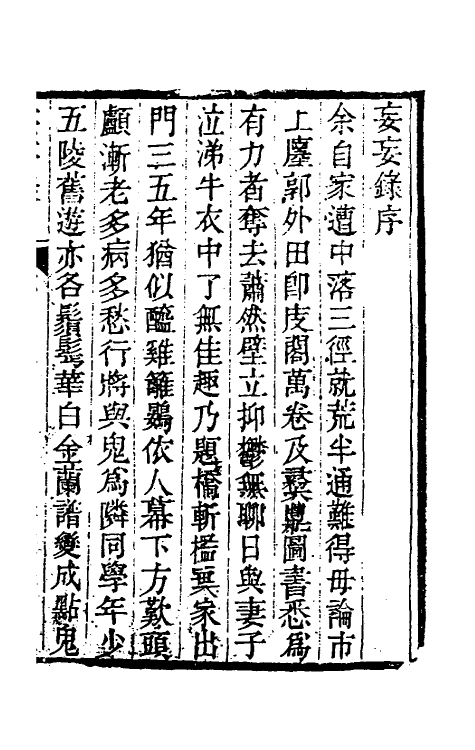 妄妄錄序
余自家遭中落三徑就荒半通難得毋論市
上廛郭外田卽庋閣萬卷及彝鼎圖書悉爲
有力者奪去蕭然壁立抑鬱無聊日與妻子
泣涕牛衣中了無佳趣乃題橋斬檻棄家出
門三五年猶似醯雞籬鷃依人幕下方歎頭
顱漸老多病多愁行將與鬼爲隣同學年少
五陵舊遊亦各鬚髩華白金蘭譜變成點鬼